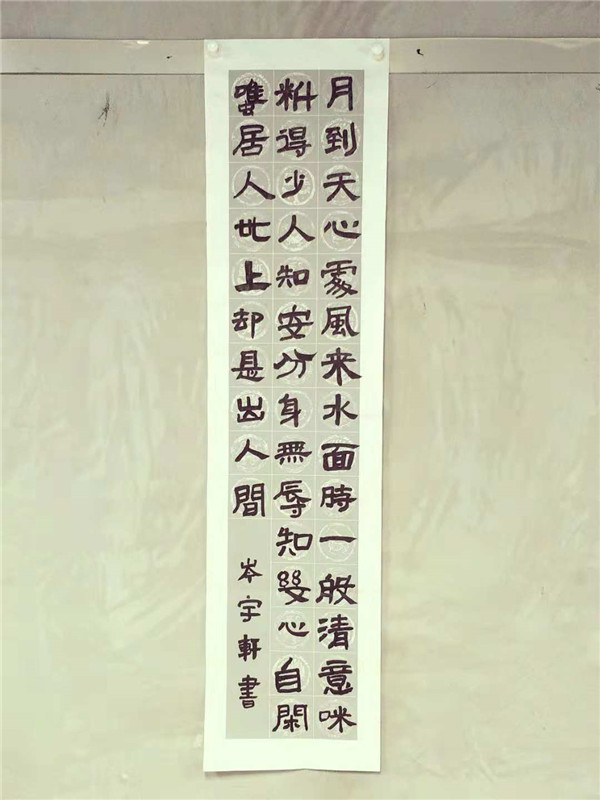 月到天心處風来水面時一般清意味
料得少人知安分身無辱知幾心自閑
雖居人世上却是出人間
岑宇軒書